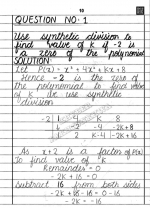 10
QUESTION NO· 1
Use synthetic division to
find value of k if -2 is
a zero of the polynomial
SOLUTION
Let P(x) = x³ + 4x² + Kx + 8
Hence -2 is the zero of
the polynomial to find value
of K we use synthetic
division
-2 1 4 K 8
↓ -2 -4 -2K+8
1 2 K-4 -2K+16
As x+2 is a factor of P(x)
To find value of K
Remainder = 0
-2K + 16 = 0
subtract 16 from both sides
-2K + 16 - 16 = 0 - 16
-2K = -16